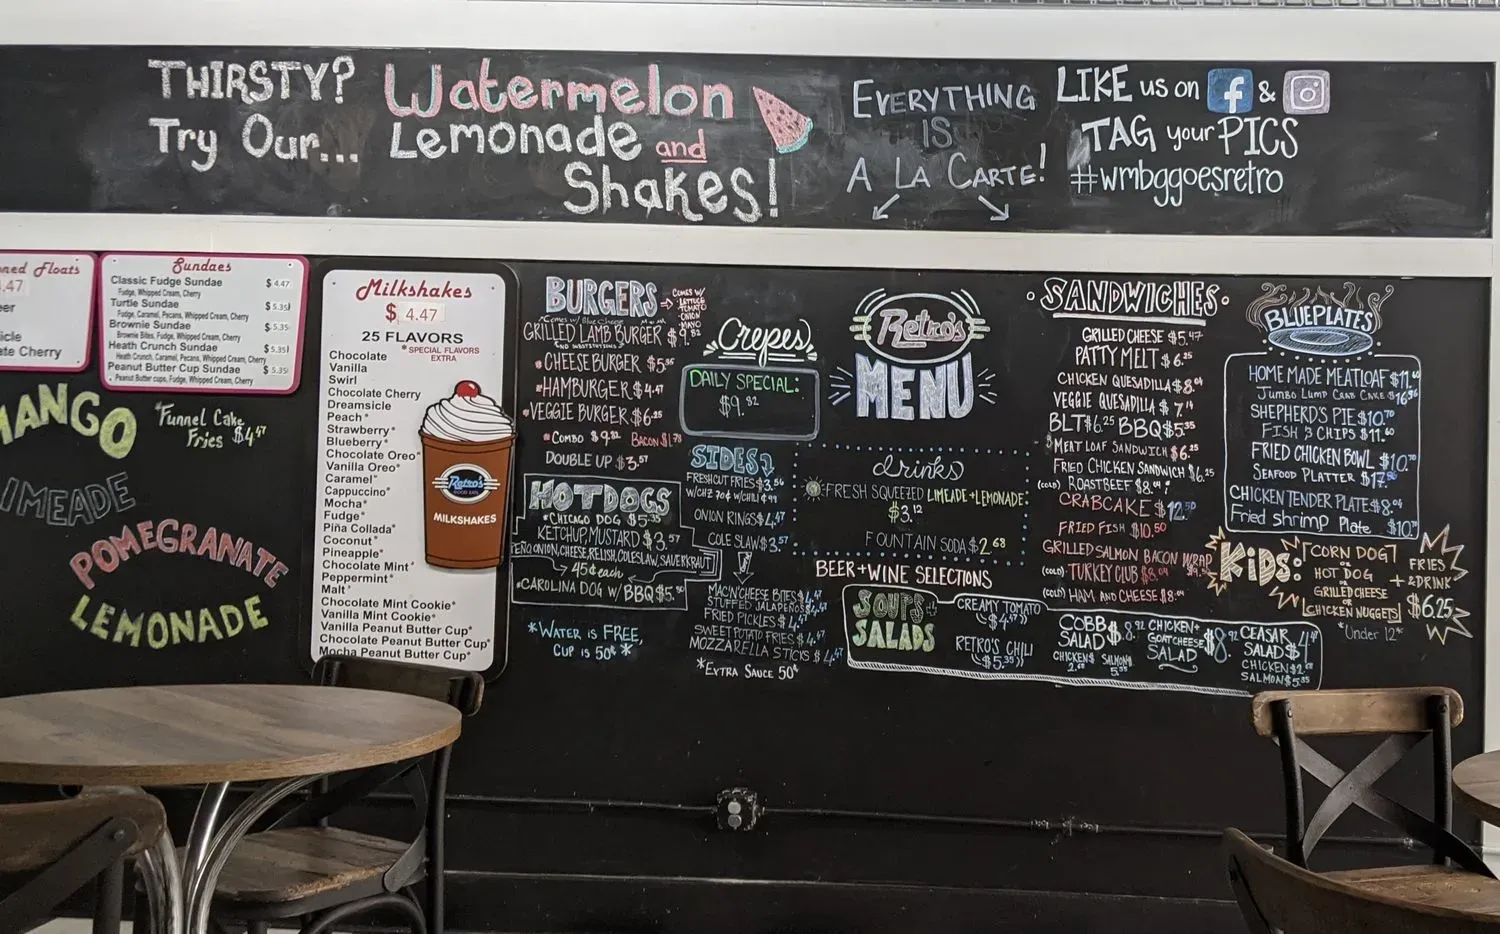 THIRSTY?
Try Our...
Watermelon
Lemonade and
Shakes!
EVERYTHING
IS
A LA CARTE!
LIKE us on f &
TAG your PICS
#wmbggoesretro
Floats
.47
Cherry
Sundaes
Classic Fudge Sundae $ 4.47
Fudge, Whipped Cream, Cherry
Turtle Sundae $ 5.35
Fudge, Caramel, Pecans, Whipped Cream, Cherry
Brownie Sundae $ 5.35
Brownie Bites, Fudge, Whipped Cream, Cherry
Heath Crunch Sundae $ 5.35
Heath Crunch, Caramel, Pecans, Whipped Cream, Cherry
Peanut Butter Cup Sundae $ 5.35
Peanut Butter cups, Fudge, Whipped Cream, Cherry
MANGO
*Funnel Cake
Fries $4.47
LIMEADE
POMEGRANATE
LEMONADE
Milkshakes
$ 4.47
25 FLAVORS
*SPECIAL FLAVORS
EXTRA
Chocolate
Vanilla
Swirl
Chocolate Cherry
Dreamsicle
Peach*
Strawberry*
Blueberry*
Chocolate Oreo*
Vanilla Oreo*
Caramel*
Cappuccino*
Mocha*
Fudge*
Piña Collada*
Coconut*
Pineapple*
Chocolate Mint*
Peppermint*
Malt*
Chocolate Mint Cookie*
Vanilla Mint Cookie*
Vanilla Peanut Butter Cup*
Chocolate Peanut Butter Cup*
Mocha Peanut Butter Cup*
Retro's
MILKSHAKES
BURGERS
COMES W/
LETTUCE
TOMATO
ONION
MAYO
GRILLED LAMB BURGER $9.82
*CHEESEBURGER $5.35
*HAMBURGER $4.47
*VEGGIE BURGER $6.25
*COMBO $9.82 BACON $1.78
DOUBLE UP $3.57
HOTDOGS
*CHICAGO DOG $5.35
KETCHUP, MUSTARD $3.57
ONION, CHEESE, RELISH, COLESLAW, SAUERKRAUT
45¢ each
*CAROLINA DOG W/ BBQ $5.
*WATER IS FREE,
CUP IS 50¢*
Crepes
DAILY SPECIAL:
$9.82
SIDES
FRESHCUT FRIES $3.56
W/CHZ 70¢ W/CHILI ¢99
ONION RINGS $4.47
COLE SLAW $3.57
MAC'N'CHEESE BITES $4.47
STUFFED JALAPEÑOS $4.47
FRIED PICKLES $4.47
SWEET POTATO FRIES $4.47
MOZZARELLA STICKS $4.47
*EXTRA SAUCE 50¢
Retro's
MENU
drinks
FRESH SQUEEZED LIMEADE+LEMONADE:
$3.12
FOUNTAIN SODA $2.68
BEER+WINE SELECTIONS
SOUPS+
SALADS
CREAMY TOMATO
$4.47
RETRO'S CHILI
$5.35
COBB
SALAD $8.92
CHICKEN $2.68 SALMON $5.35
CHICKEN+
GOAT CHEESE $8.92
SALAD
CEASAR
SALAD $4.47
CHICKEN $2.68
SALMON $5.35
SANDWICHES
GRILLED CHEESE $5.47
PATTY MELT $6.25
CHICKEN QUESADILLA $8.04
VEGGIE QUESADILLA $7.14
BLT $6.25 BBQ $5.35
MEAT LOAF SANDWICH $6.25
FRIED CHICKEN SANDWICH $6.25
(COLD) ROASTBEEF $8.04
CRABCAKE $12.50
FRIED FISH $10.50
GRILLED SALMON BACON WRAP
(COLD) TURKEY CLUB $8.04
(COLD) HAM AND CHEESE $8.04
BLUEPLATES
HOME MADE MEATLOAF $11.60
JUMBO LUMP CRAB CAKE $16.96
SHEPHERD'S PIE $10.70
FISH & CHIPS $11.60
FRIED CHICKEN BOWL $10.70
SEAFOOD PLATTER $17.86
CHICKEN TENDER PLATE $8.04
Fried shrimp Plate $10.70
KiDS:
CORN DOG
OR
HOT DOG
OR
GRILLED CHEESE
OR
CHICKEN NUGGETS
+
FRIES
& DRINK
$6.25
*Under 12*